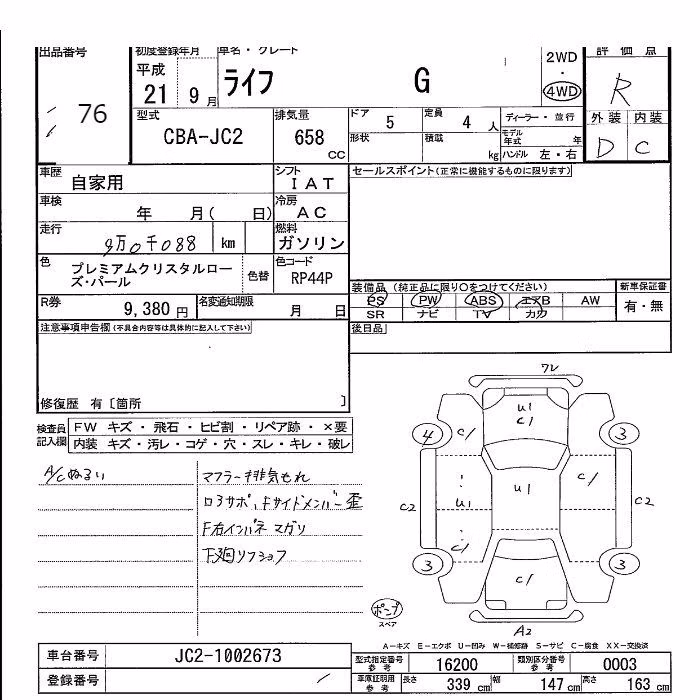 出品番号 初度登録年月 車名・グレード 2WD 評価点
平成 21 9月 ライフ G ・ 4WD R
76
型式 排気量 ドア 5 定員 4人 ディーラー・並行 外装 内装
CBA-JC2 658 CC 形状 積載 kg モデル年式 年 D C
ハンドル 左・右
車歴 自家用 シフト IAT セールスポイント(正常に機能するものに限ります)
車検 年 月( 日) 冷房 AC
走行 9万0千088 km 燃料 ガソリン
色 プレミアムクリスタルローズ・パール 色替 色コード RP44P
装備品 (純正品に限り○をつけてください) 新車保証書
PS PW ABS エアB AW 有・無
SR ナビ TV カワ
R券 9,380円 名変通知期限 月 日
注意事項申告欄(不具合内容等は具体的に記入して下さい) 後日品
修復歴 有〔箇所 〕
検査員記入欄 FW キズ・飛石・ヒビ割・リペア跡・×要
内装 キズ・汚レ・コゲ・穴・スレ・キレ・破レ
A/Cぬるい マフラー排気もれ
ロ3サポ、Fサイドメンバー歪
F右インパネ マガリ
下廻リフショフ
ワレ
U1
C1
4 C1 3
C1
U1 U1
C2 C2
C1
3 C1 3
ポンプ
スペア
A2
A-キズ E-エクボ U-凹み W-補修跡 S-サビ C-腐食 XX-交換済
車台番号 JC2-1002673 型式指定番号 参考 16200 類別区分番号 参考 0003
登録番号 車庫証明用 参考 長さ 339 cm 幅 147 cm 高さ 163 cm